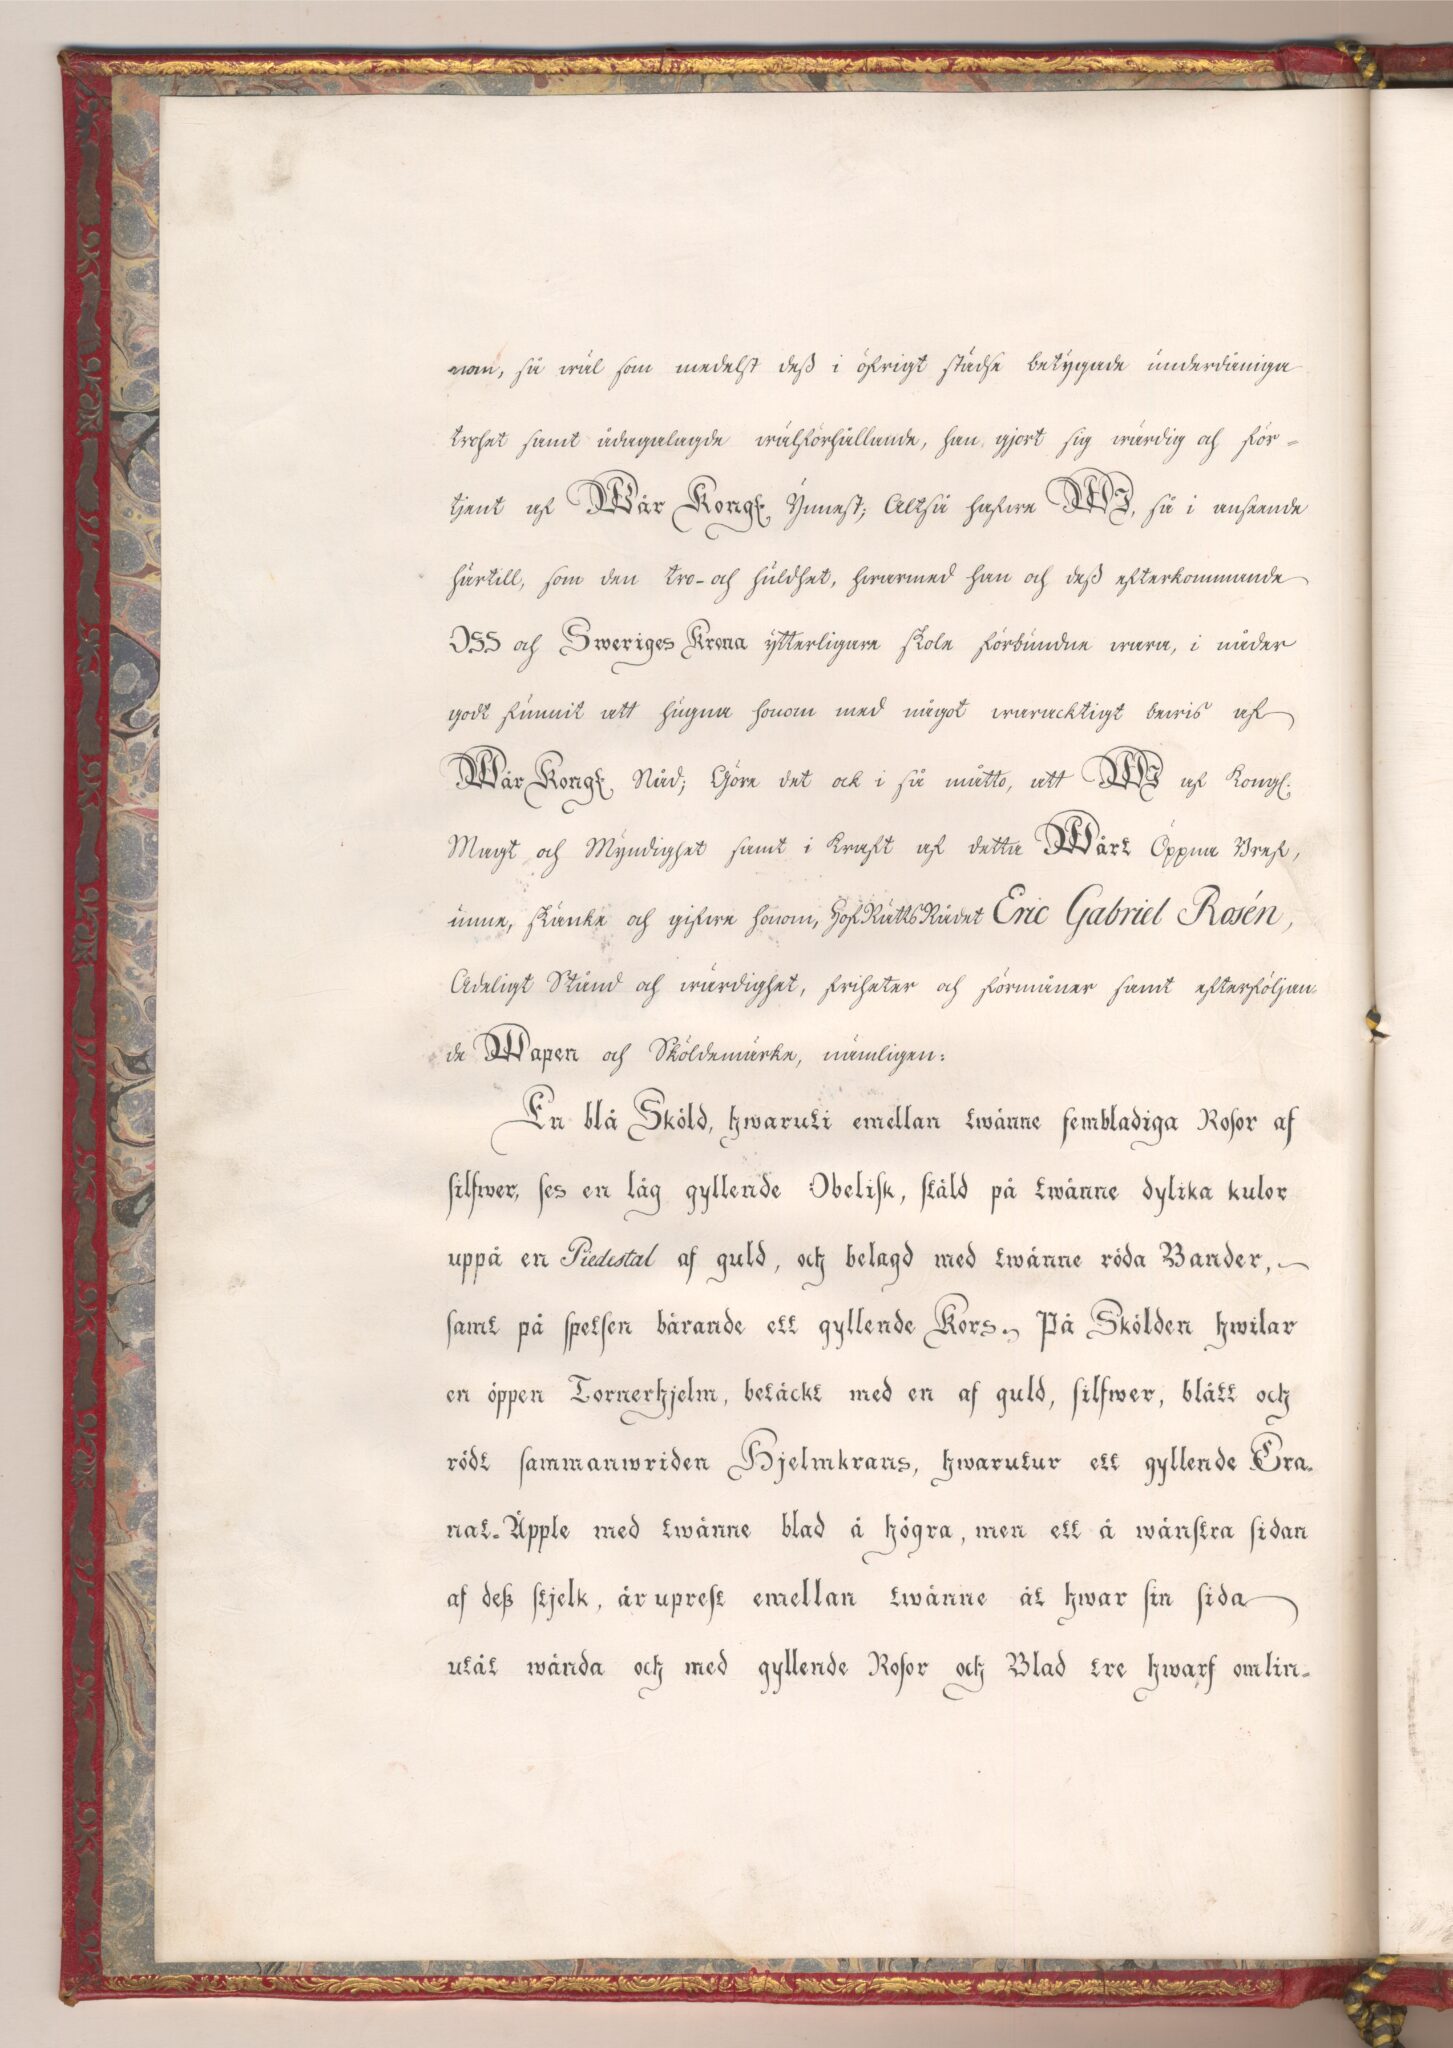 nom, så wäl som medelst deß i öfrigt städse betygade underdåniga
trohet samt ådagalagde wälförhållande, han gjort sig wärdig och för-
tjent af Wår Kongl. Ynnest; Altså hafwe WJ, så i anseende
härtill, som den tro- och huldhet, hwarmed han och deß efterkommande
OSS och Sweriges Krona ytterligare skole förbundne wara, i nåder
godt funnit att hugna honom med något waracktigt bewis af
Wår Kongl. Nåd; Göre det ock i så måtto, att WJ af Kongl.
Magt och Myndighet samt i Kraft af detta Wårt Öppna Bref,
unne, skänke och gifwe honom, HofRättsRådet Eric Gabriel Rosén,
Adeligt Stånd och wärdighet, friheter och förmåner samt efterföljan-
de Wapen och Sköldemärke, nämligen:
En blå Sköld, hwaruti emellan twänne fembladiga Rosor af
silfwer, ses en låg gyllende Obelisk, stäld på twänne dylika kulor
uppå en Piedestal af guld, och belagd med twänne röda Bander,
samt på spetsen bärande ett gyllende Kors. På Skölden hwilar
en öppen Tornerhjelm, betäckt med en af guld, silfwer, blått och
rödt sammanwriden Hjelmkrans, hwarutur ett gyllende Gra-
nat-Äpple med twänne blad å högra, men ett å wänstra sidan
af deß stjelk, är uprest emellan twänne åt hwar sin sida
utåt wända och med gyllende Rosor och Blad tre hwarf omlin-